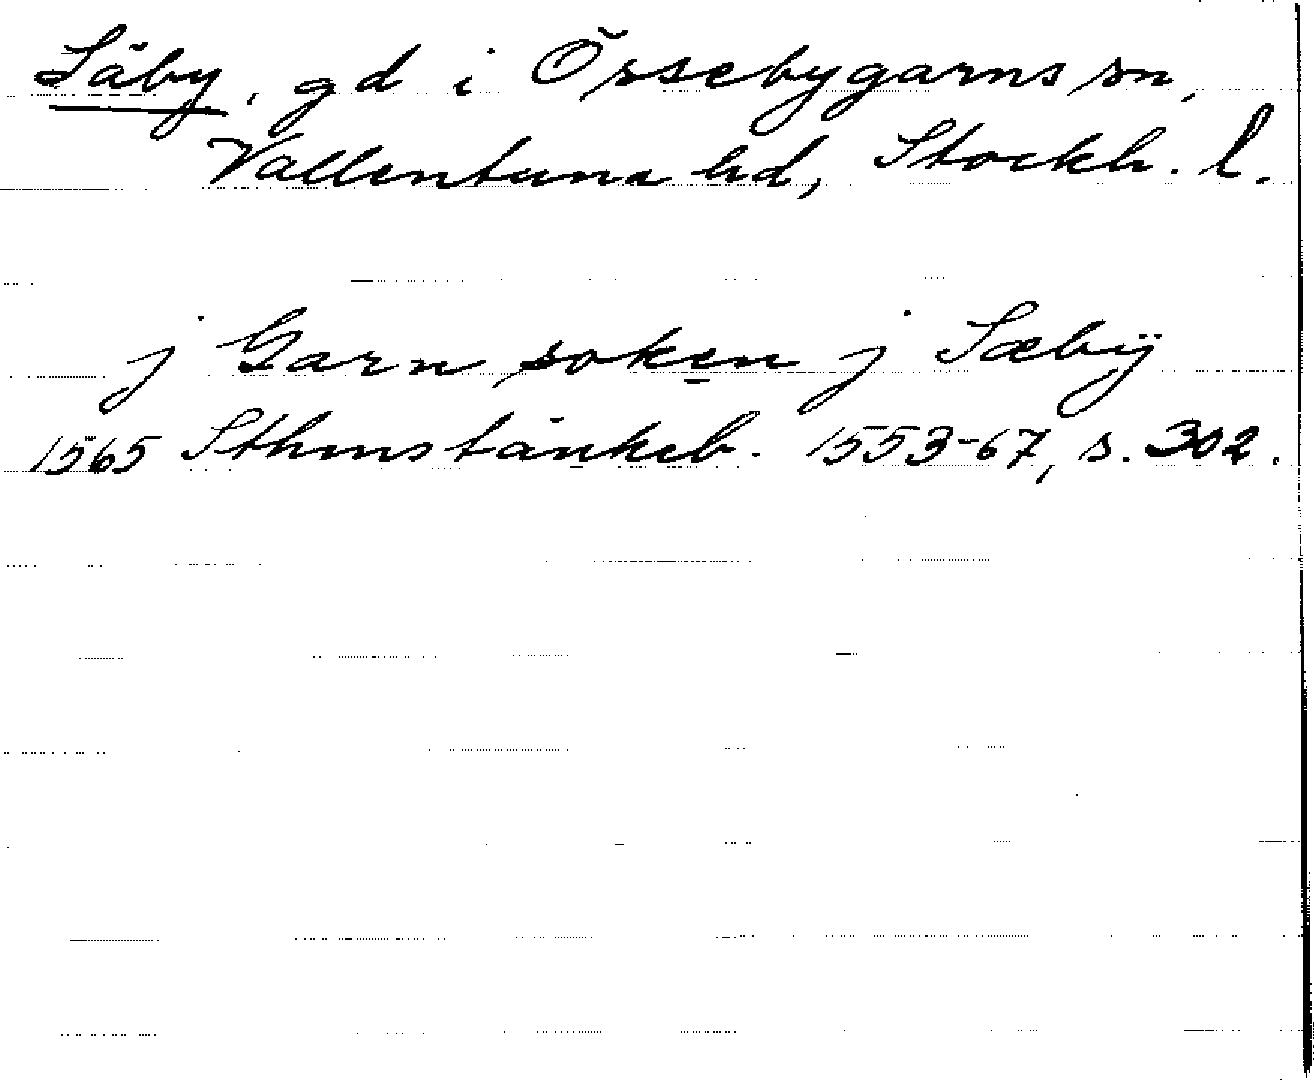 Säby, gd i Össebygarns sn,
Vallentuna hd, Stockh. l.
j Garn soken j Sæbÿ
1565 Sthms tänkeb. 1553-67, s. 302.